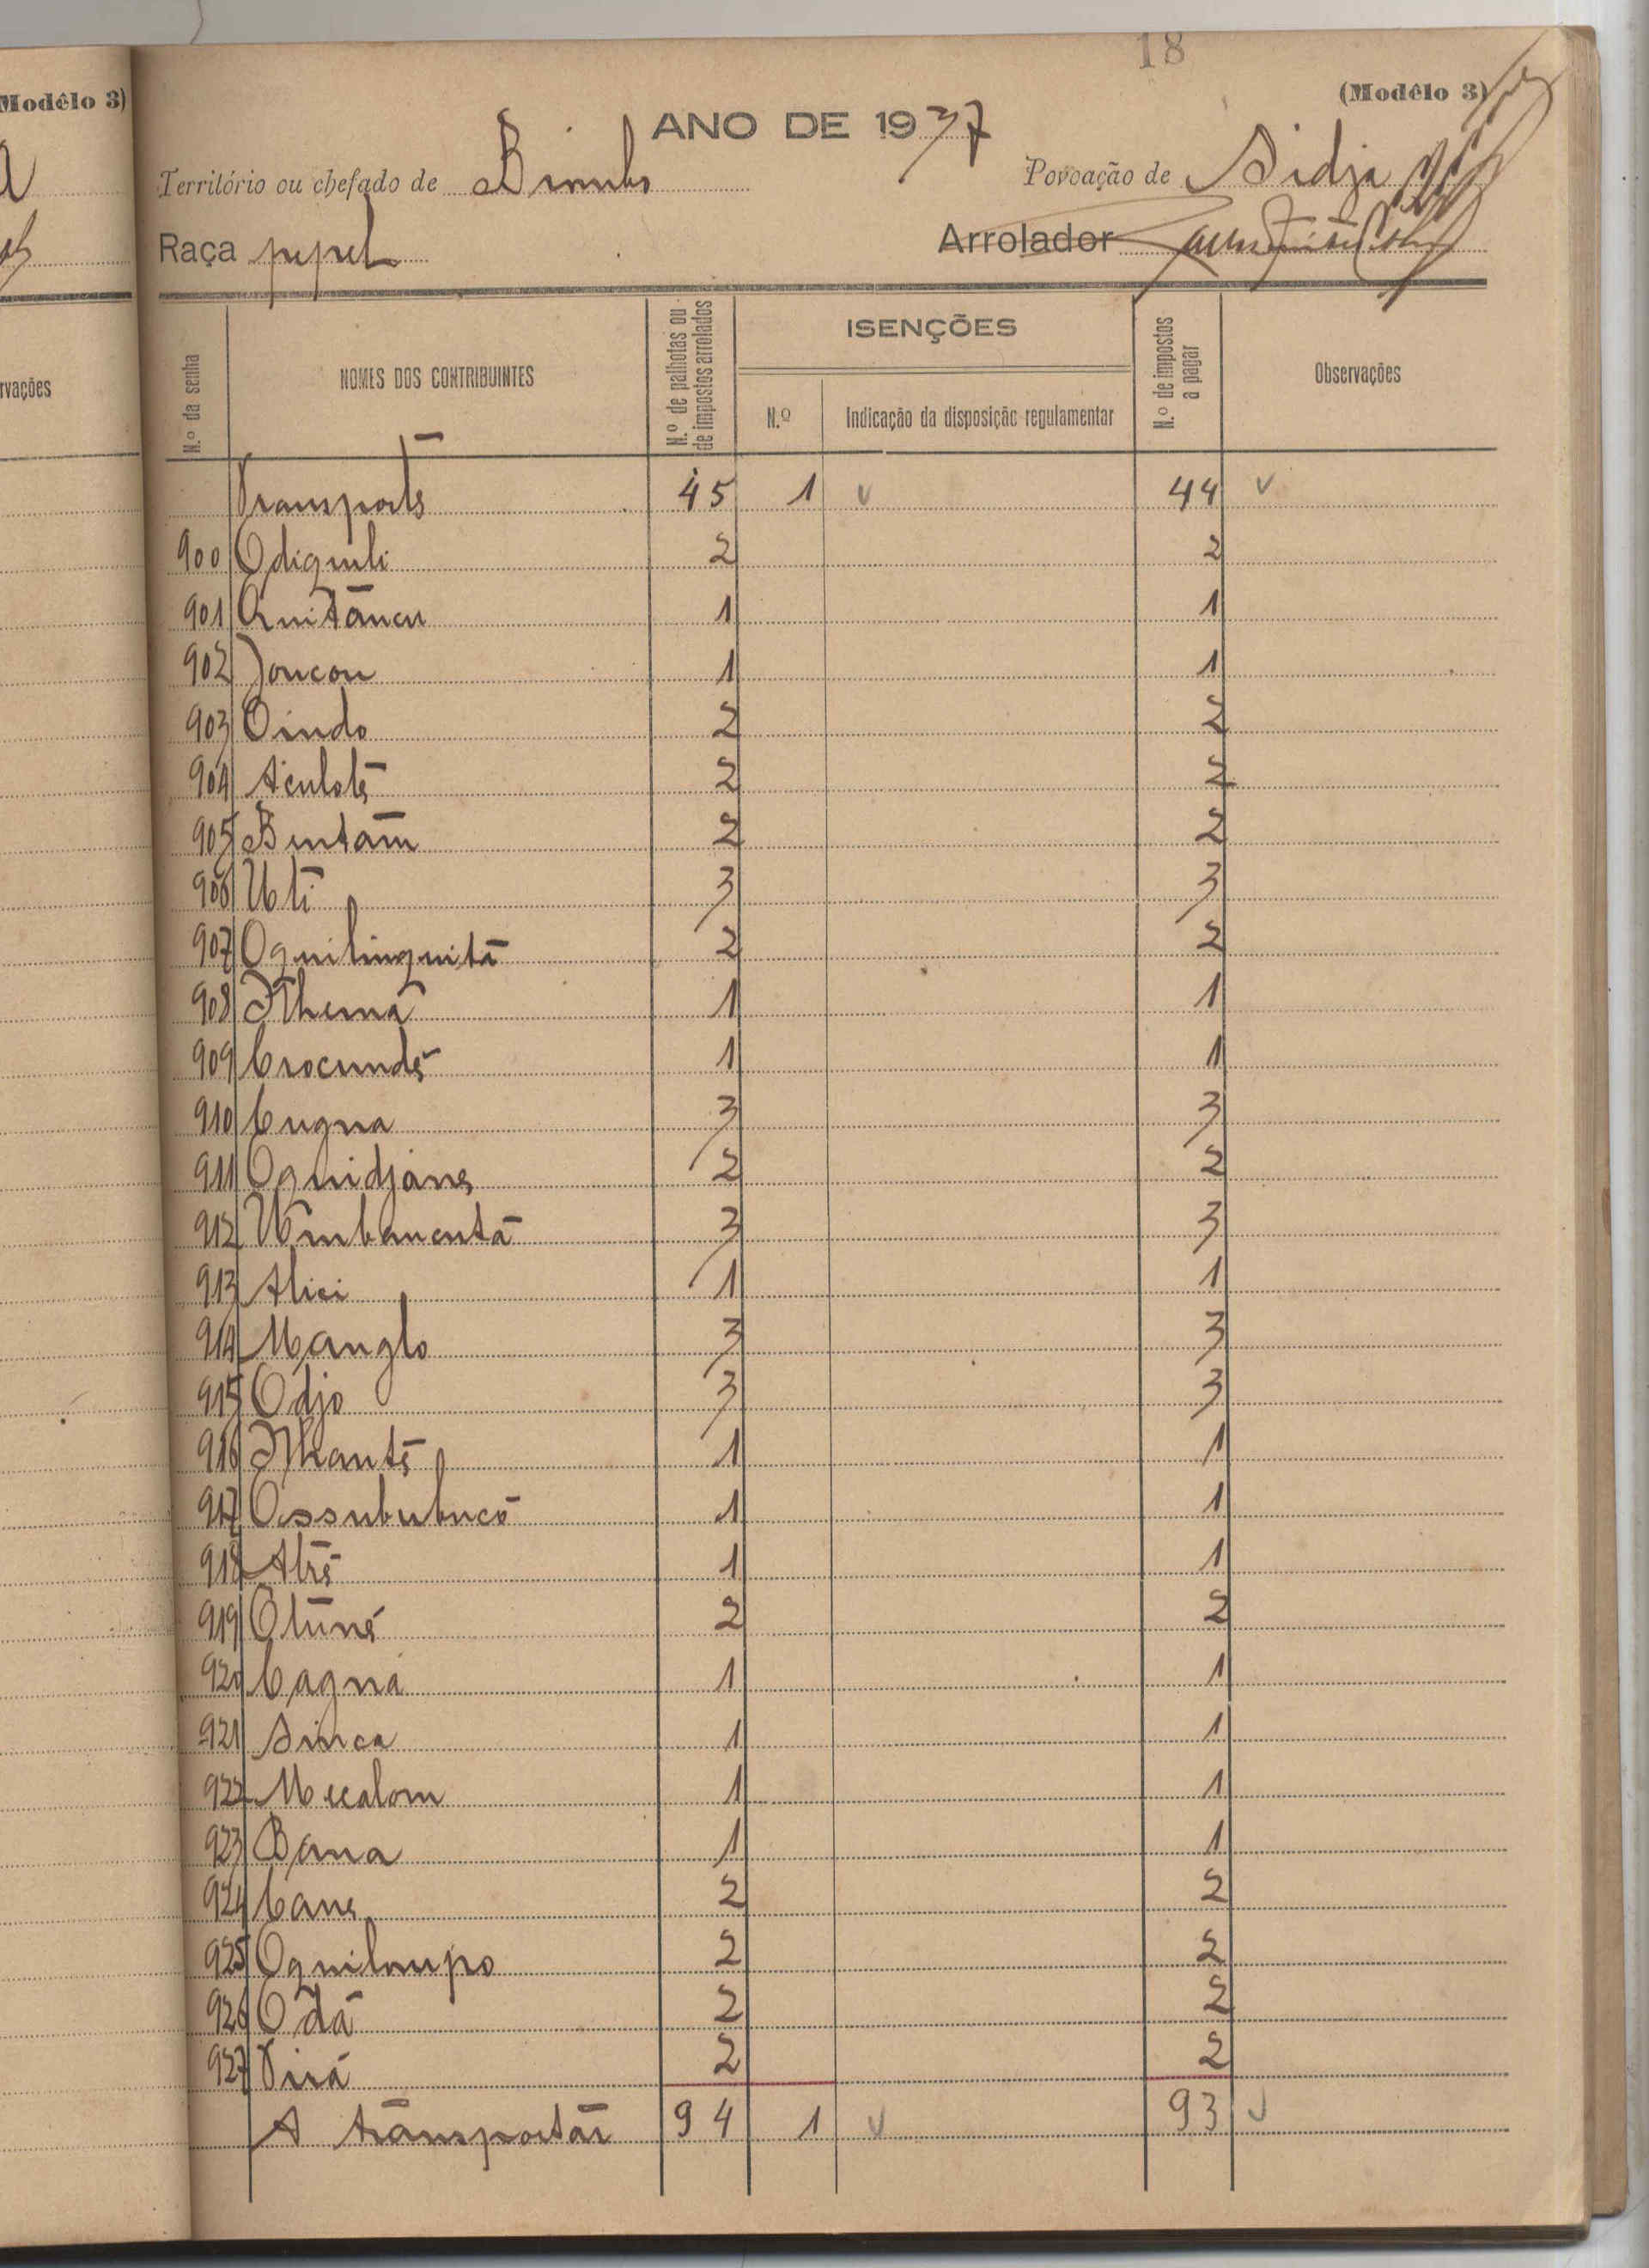 18
Modêlo 3)
(Modêlo 3)
ANO DE 1937
Território ou chefado de Biombo
Povoação de Sidja
Raça pepel
Arrolador
rvações
N.º da senha
NOMES DOS CONTRIBUINTES
N.º de palhotas ou de impostos arrolados
ISENÇÕES
N.º
Indicação da disposição regulamentar
N.º de impostos a pagar
Observações
Transporte 45 1 v 44 v
900 Odiguili 2 2
901 Quitáncu 1 1
902 Joucou 1 1
903 Oindo 2 2
904 Aculoté 2 2
905 Bintam 2 2
906 Uti 3 3
907 Oquilinquitá 2 2
908 Nhemá 1 1
909 Crocundé 1 1
910 Cugna 3 3
911 Oquidjane 2 2
912 Umbancutá 3 3
913 Alici 1 1
914 Manglo 3 3
915 Odjo 3 3
916 Nhanté 1 1
917 Ossububucó 1 1
918 Atré 1 1
919 Otuné 2 2
920 Cagná 1 1
921 Sinca 1 1
922 Mecalom 1 1
923 Bana 1 1
924 Cane 2 2
925 Oquiloupo 2 2
926 Odá 2 2
927 Pirá 2 2
A transportar 94 1 v 93 v